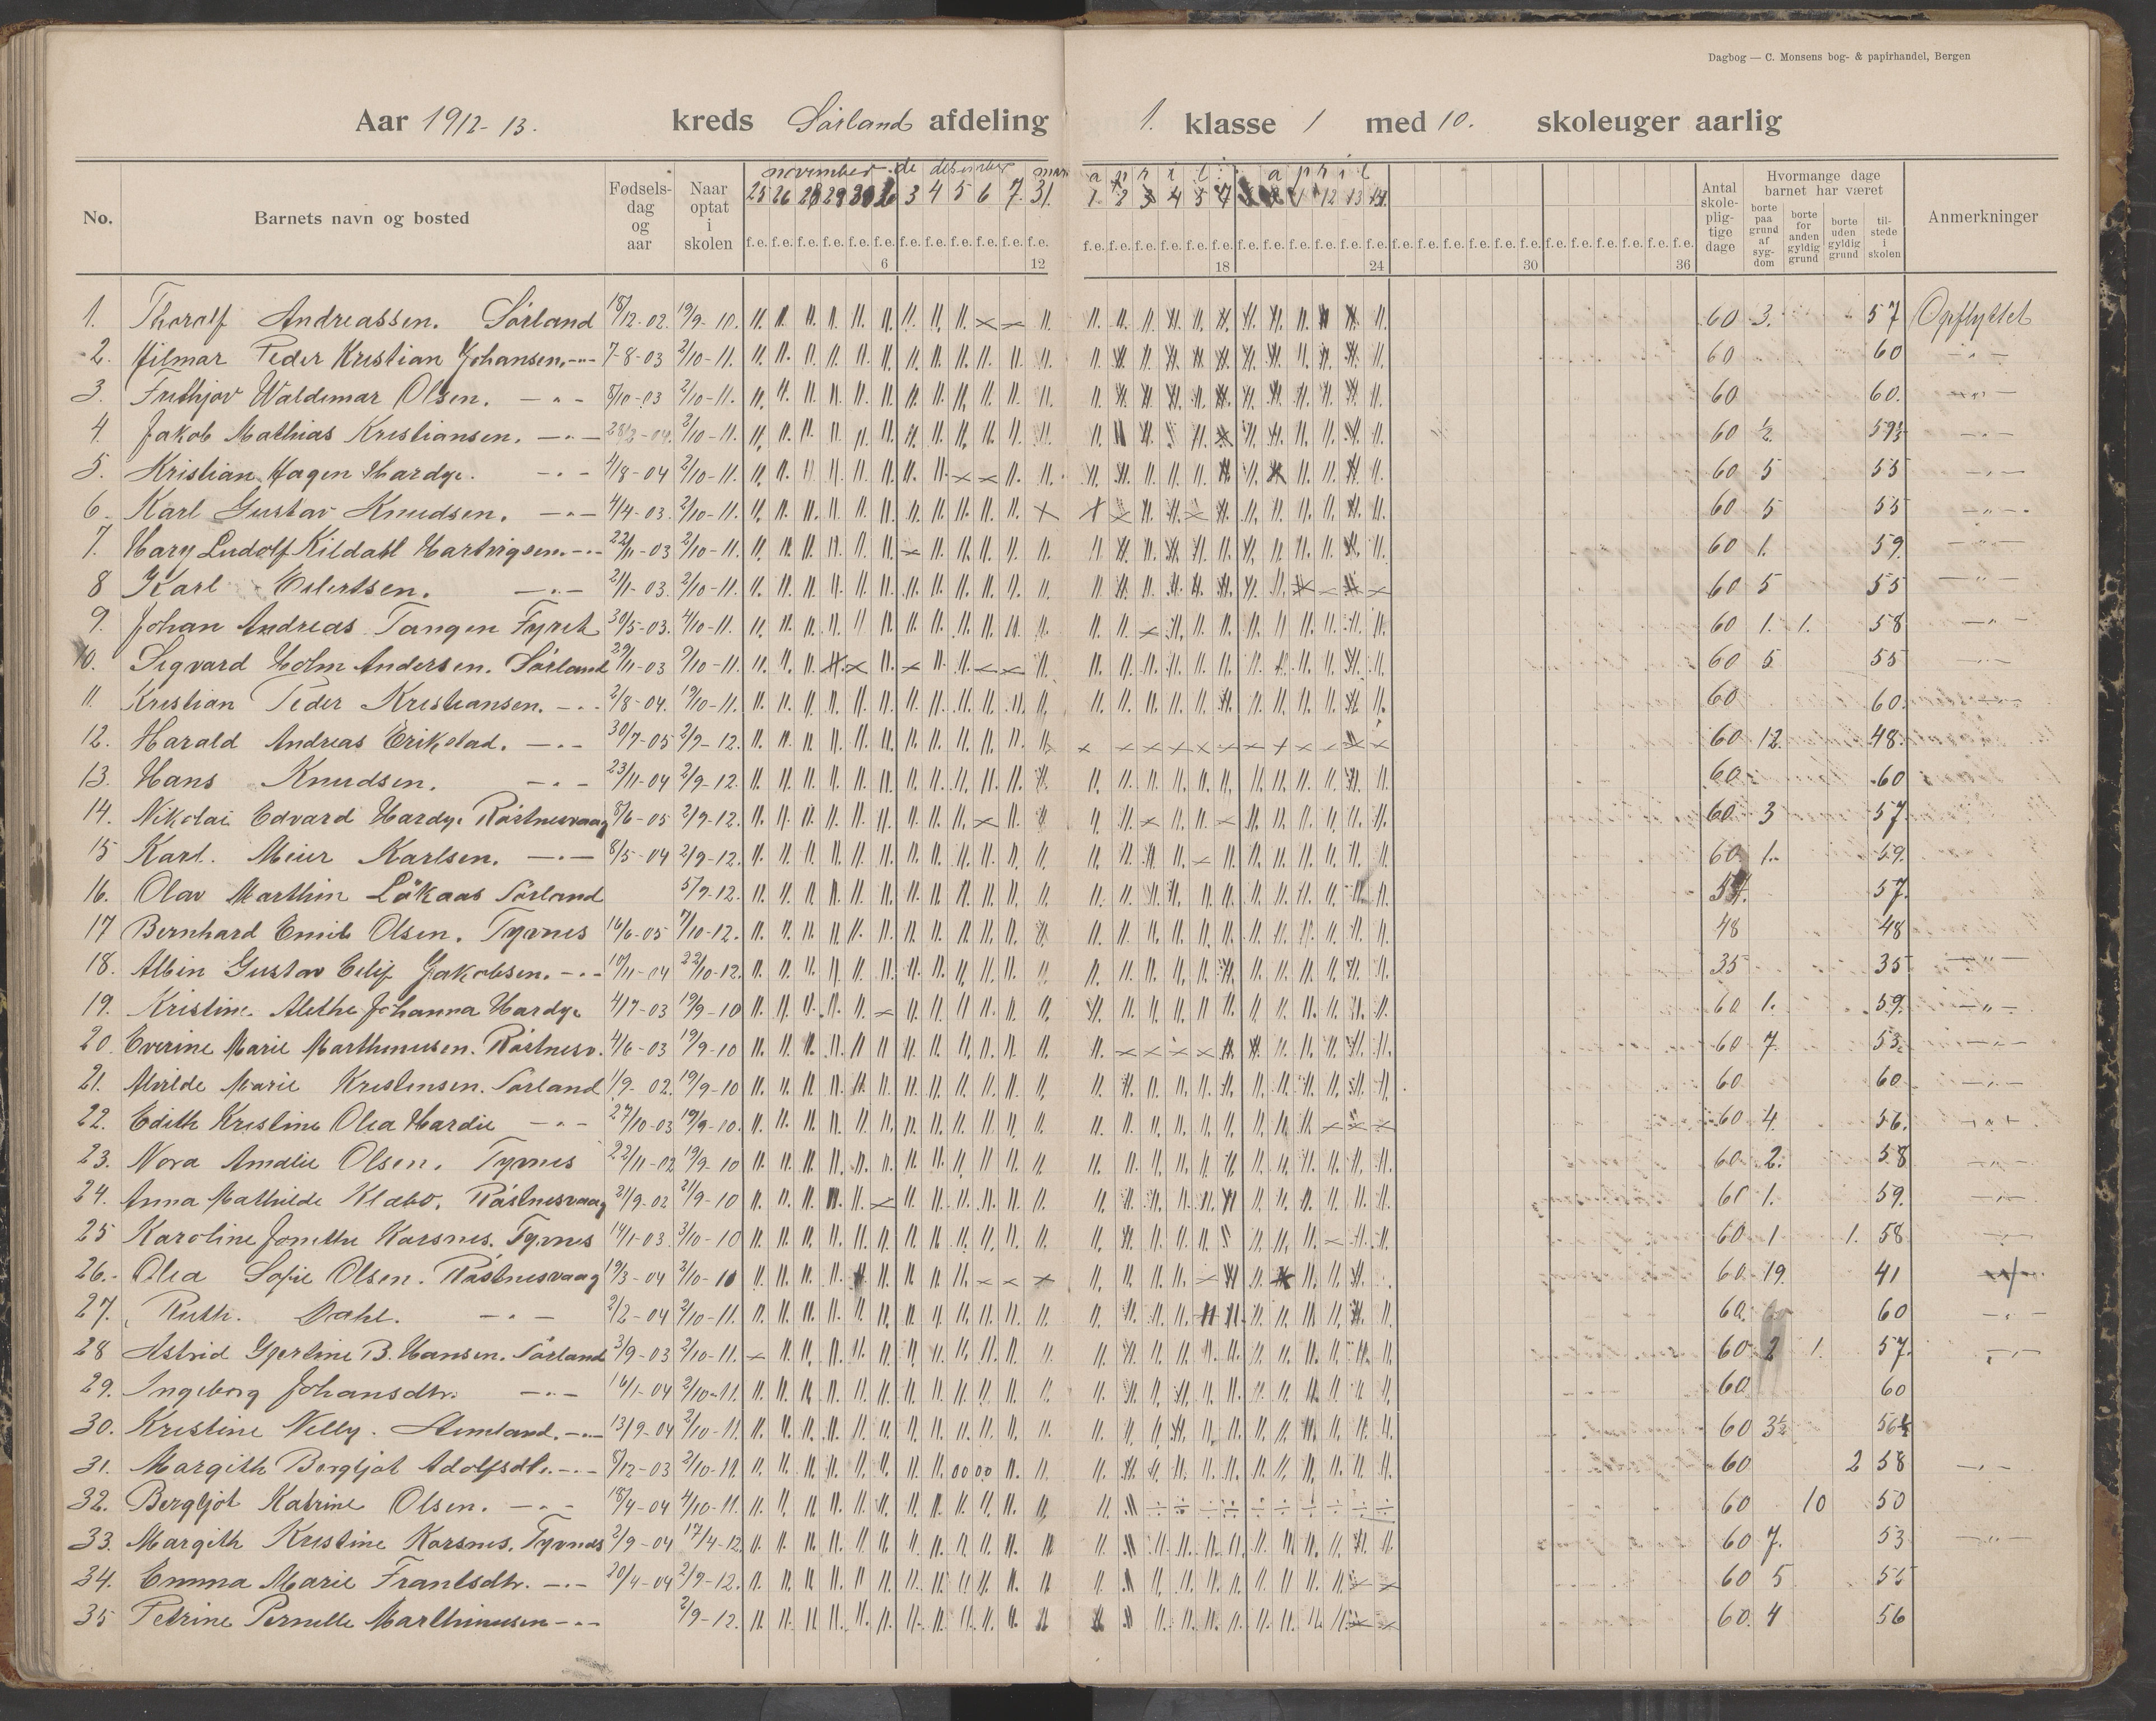 Dagbog — C. Monsens bog- & papirhandel, Bergen
Aar 1912-13. kreds Sørland afdeling 1. klasse 1 med 10. skoleuger aarlig
No. Barnets navn og bosted Fødsels-dag og aar Naar optat i skolen november de desember mars april april Antal skole-plig-tige dage Hvormange dage barnet har været borte paa grund af syg-dom borte for anden gyldig grund borte uden gyldig grund til-stede i skolen Anmerkninger
25 26 28 29 30 3 4 5 6 7. 31. 1 2 3 4 5 7 12 13 14
f.e. f.e. f.e. f.e. f.e. f.e. f.e. f.e. f.e. f.e. f.e. f.e. f.e. f.e. f.e. f.e. f.e. f.e. f.e. f.e. f.e. f.e. f.e. f.e. f.e. f.e. f.e. f.e. f.e. f.e. f.e. f.e. f.e. f.e. f.e. f.e.
6 12 18 24 30 36
1. Thoralf Andreassen. Sørland 18/12-02. 19/9-10. 60 3. 57 Opflyttet
2. Hilmar Peder Kristian Johansen. -"- 7-8-03 2/10-11. 60 60 -"-
3. Frithjov Waldemar Olsen. -"- 8/10-03 2/10-11. 60 60. -"-
4. Jakob Mathias Kristiansen. -"- 28/2-04. 2/10-11. 60 ½ 59½ -"-
5. Kristian Hagen Hardy. -"- 4/8-04 2/10-11. 60 5 55 -"-
6. Karl Gustav Knudsen. -"- 4/4-03. 2/10-11. 60 5 55 -"-
7. Hary Ludolf Kildahl Hartvigsen. -"- 22/11-03 2/10-11. 60 1. 59. -"-
8 Karl Eilertsen. -"- 2/11-03. 2/10-11. 60 5 55 -"-
9. Johan Andreas Tangen Fyret 30/5-03. 4/10-11. 60 1. 1. 58 -"-
10. Sigvard Holm Andersen. Sørland 29/11-03 9/10-11. 60 5 55 -"-
11. Kristian Peder Kristiansen. -"- 2/8-04. 19/10-11. 60 60. -"-
12. Harald Andreas Erikstad. -"- 30/7-05 2/9-12. 60 12 48.
13. Hans Knudsen. -"- 23/11-04 2/9-12. 60 60
14. Nikolai Edvard Hardy. Røstnesvaag 8/6-05 2/9-12. 60 3 57
15 Karl Meier Karlsen. -"- 8/5-04 2/9-12. 60 1. 59.
16. Olav Marthin Løkaas Sørland 5/9-12. 57. 57.
17 Bernhard Emil Olsen. Tyvnes 16/6-05 7/10-12. 48 48
18. Albin Gustav Jakobsen. -"- 10/11-04 22/10-12. 35 35 -"-
19. Kristine Alethe Johanna Hardy. 4/7-03 19/9-10 60 1. 59. -"-
20. Everine Marie Marthinusen. Røstnesv. 4/6-03 19/9-10 60 7. 53. -"-
21. Milde Marie Kristensen. Sørland 1/9-02. 19/9-10 60 60. -"-
22. Edith Kristine Olea Hardie -"- 27/10-03 19/9-10. 60 4 56. -"-
23. Nora Amalie Olsen. Tyvnes 22/11-02 19/9-10 60 2. 58 -"-
24. Anna Mathilde Klæbo. Røstnesvaag 21/9-02 21/9-10 60 1. 59. -"-
25 Karoline Jonette Korsnes. Tyvnes 14/1-03. 3/10-10 60 1 1. 58 -"-
26. Olea Sofie Olsen. Røstnesvaag 19/3-04 3/10-10 60. 19. 41
27. Ruth. Dahl. -"- 2/2-04 2/10-11. 60. 60 -"-
28 Astrid Gjertine B. Hansen. Sørland 3/9-03 2/10-11. 60 2 1. 57. -"-
29. Ingeborg Johansdtr. -"- 16/1-04 2/10-11. 60 60
30. Kristine Nelly. Stemland. -"- 13/9-04 2/10-11. 60 3½ 56½
31. Margith Bergljot Adolfsdtr. -"- 8/12-03 2/10-11. 60 2 58 -"-
32. Bergljot Katrine Olsen. -"- 18/4-04 4/10-11. 60 10 50
33. Margith Kristine Korsnes. Tyvnes 2/9-04 17/4-12. 60 7. 53 -"-
34. Emma Marie Frantsdtr. -"- 20/4-04 2/9-12. 60 5 55
35 Petrine Pernille Marthinusen -"- 2/9-12. 60. 4 56